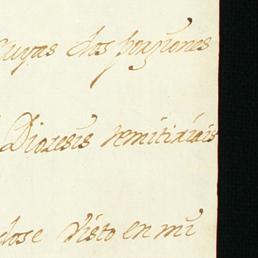 cuyas dos porziones
Diozesis remitirais
dose visto en mi